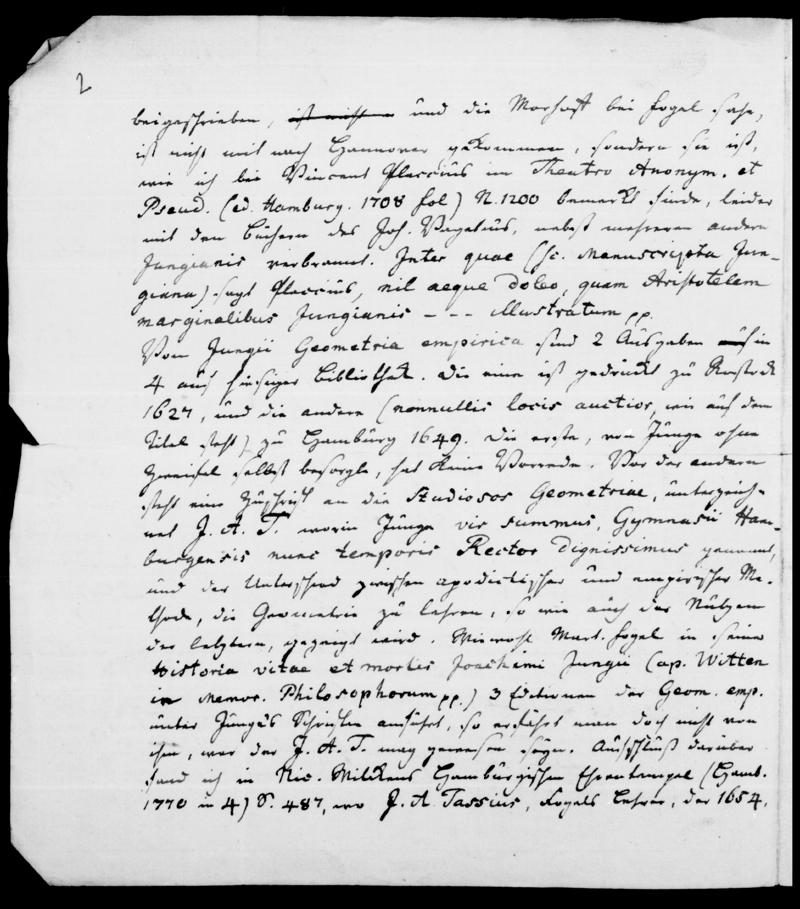 2
beigeschrieben, und die Morhoff bei Fogel sahe,
ist nicht mit nach Hannover gekommen, sondern sie ist,
wie ich bei Vincent Placcius im Theatro Anonym. et
Pseud. (ed. Hamburg. 1708 fol) N. 1200 bemerkt finde, leider
mit den Büchern des Joh. Vagetius, nebst mehreren andern
Jungianis verbrannt. Inter quae (sc. Manuscripta Jun-
giana) sagt Placcius, nil aeque doleo, quam Aristotelem
marginalibus Jungianis - - - illustratum pp.
Von Jungii Geometria empirica sind 2 Ausgaben in
4 auf hiesiger Bibliothek. Die eine ist gedruckt zu Rostock
1627, und die andere (nonnullis locis auctior, wie auf dem
Titel steht) zu Hamburg 1649. Die erste, von Junge ohne
Zweifel selbst besorgte, hat keine Vorrede. Vor der andern
steht eine Zuschrift an die Studiosos Geometriae, unterzeich-
net J. A. T. worin Junge vir summus, Gymnasii Ham-
burgensis nunc temporis Rector dignissimus genannt,
und der Unterschied zwischen apodictischer und empirischer Me-
thode, die Geometrie zu lehren, so wie auch der Nutzen
der letztern, gezeigt wird. Wiewohl Mart. Fogel in seiner
Historia vitae et mortis Joachimi Jungii (ap. Witten
in Memor. Philosophorum pp.) 3 Editionen der Geom. emp.
unter Junges Schriften anführt, so erfährt man doch nicht von
ihm, wer der J. A. T. mag gewesen seyn. Aufschluß darüber
fand ich in Nic. Wilckens Hamburgischen Ehrentempel (Hamb.
1770 in 4) S. 487, wo J. A. Tassius, Fogels Lehrer, der 1654,